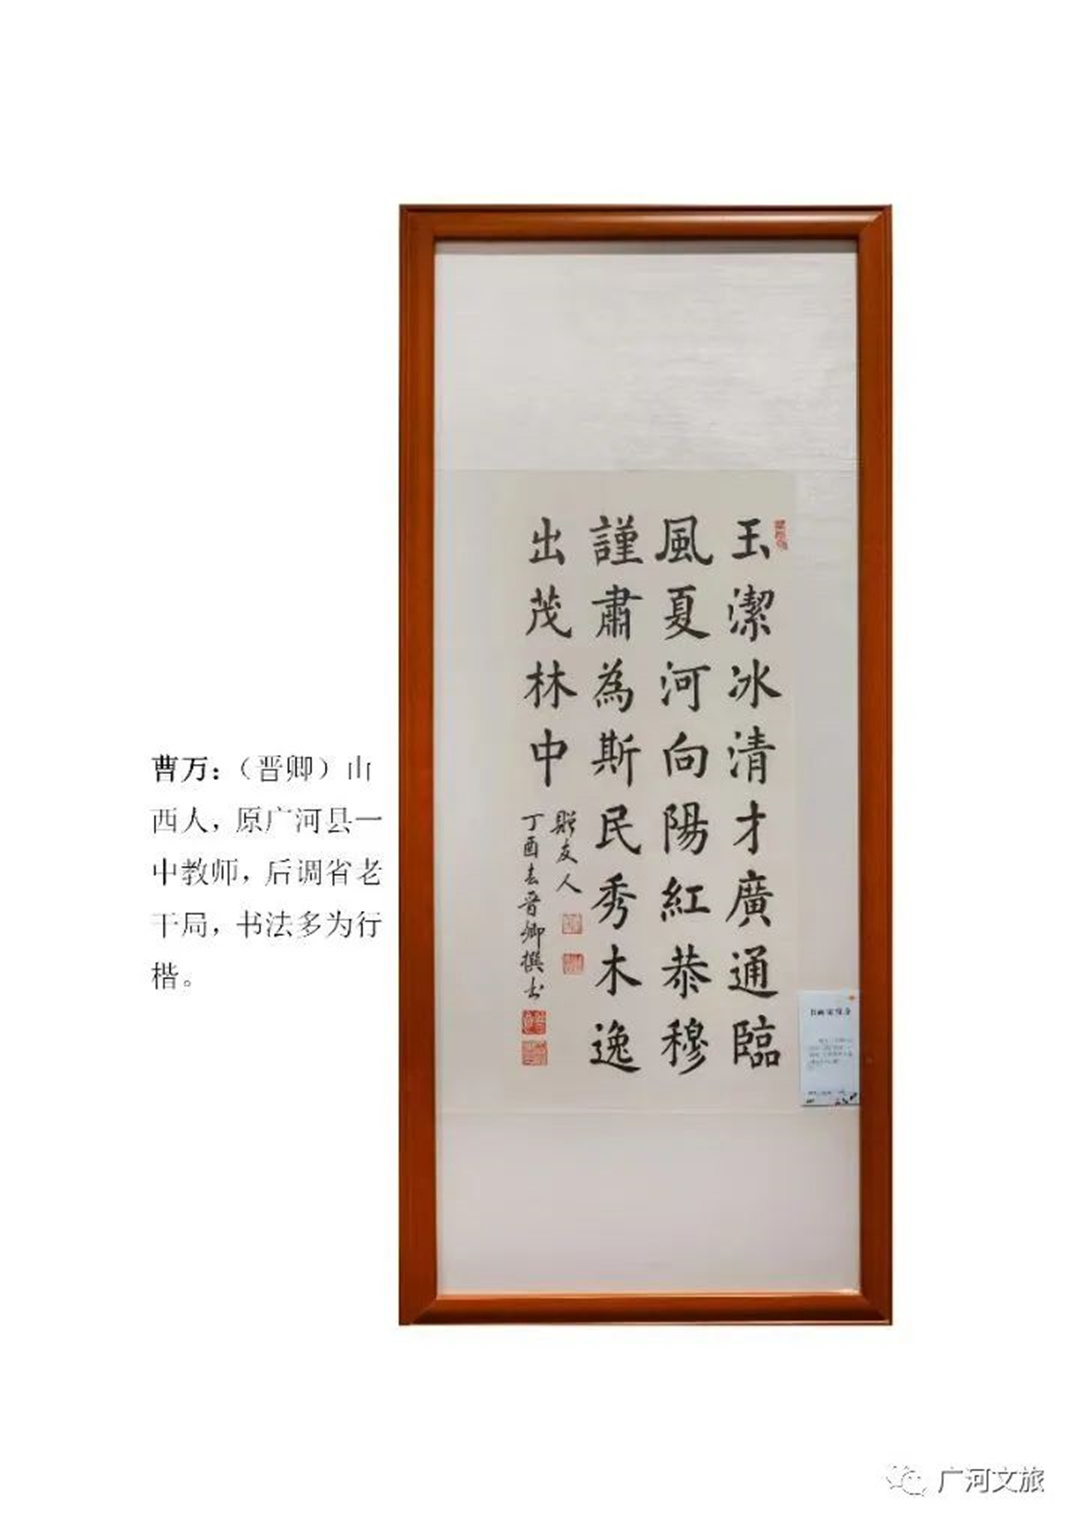 曹万：（晋卿）山
西人，原广河县一
中教师，后调省老
干局，书法多为行
楷。
玉潔冰清才廣通臨
風夏河向陽紅恭穆
謹肅為斯民秀木逸
出茂林中
贈友人
丁酉春晋卿撰书
广河文旅